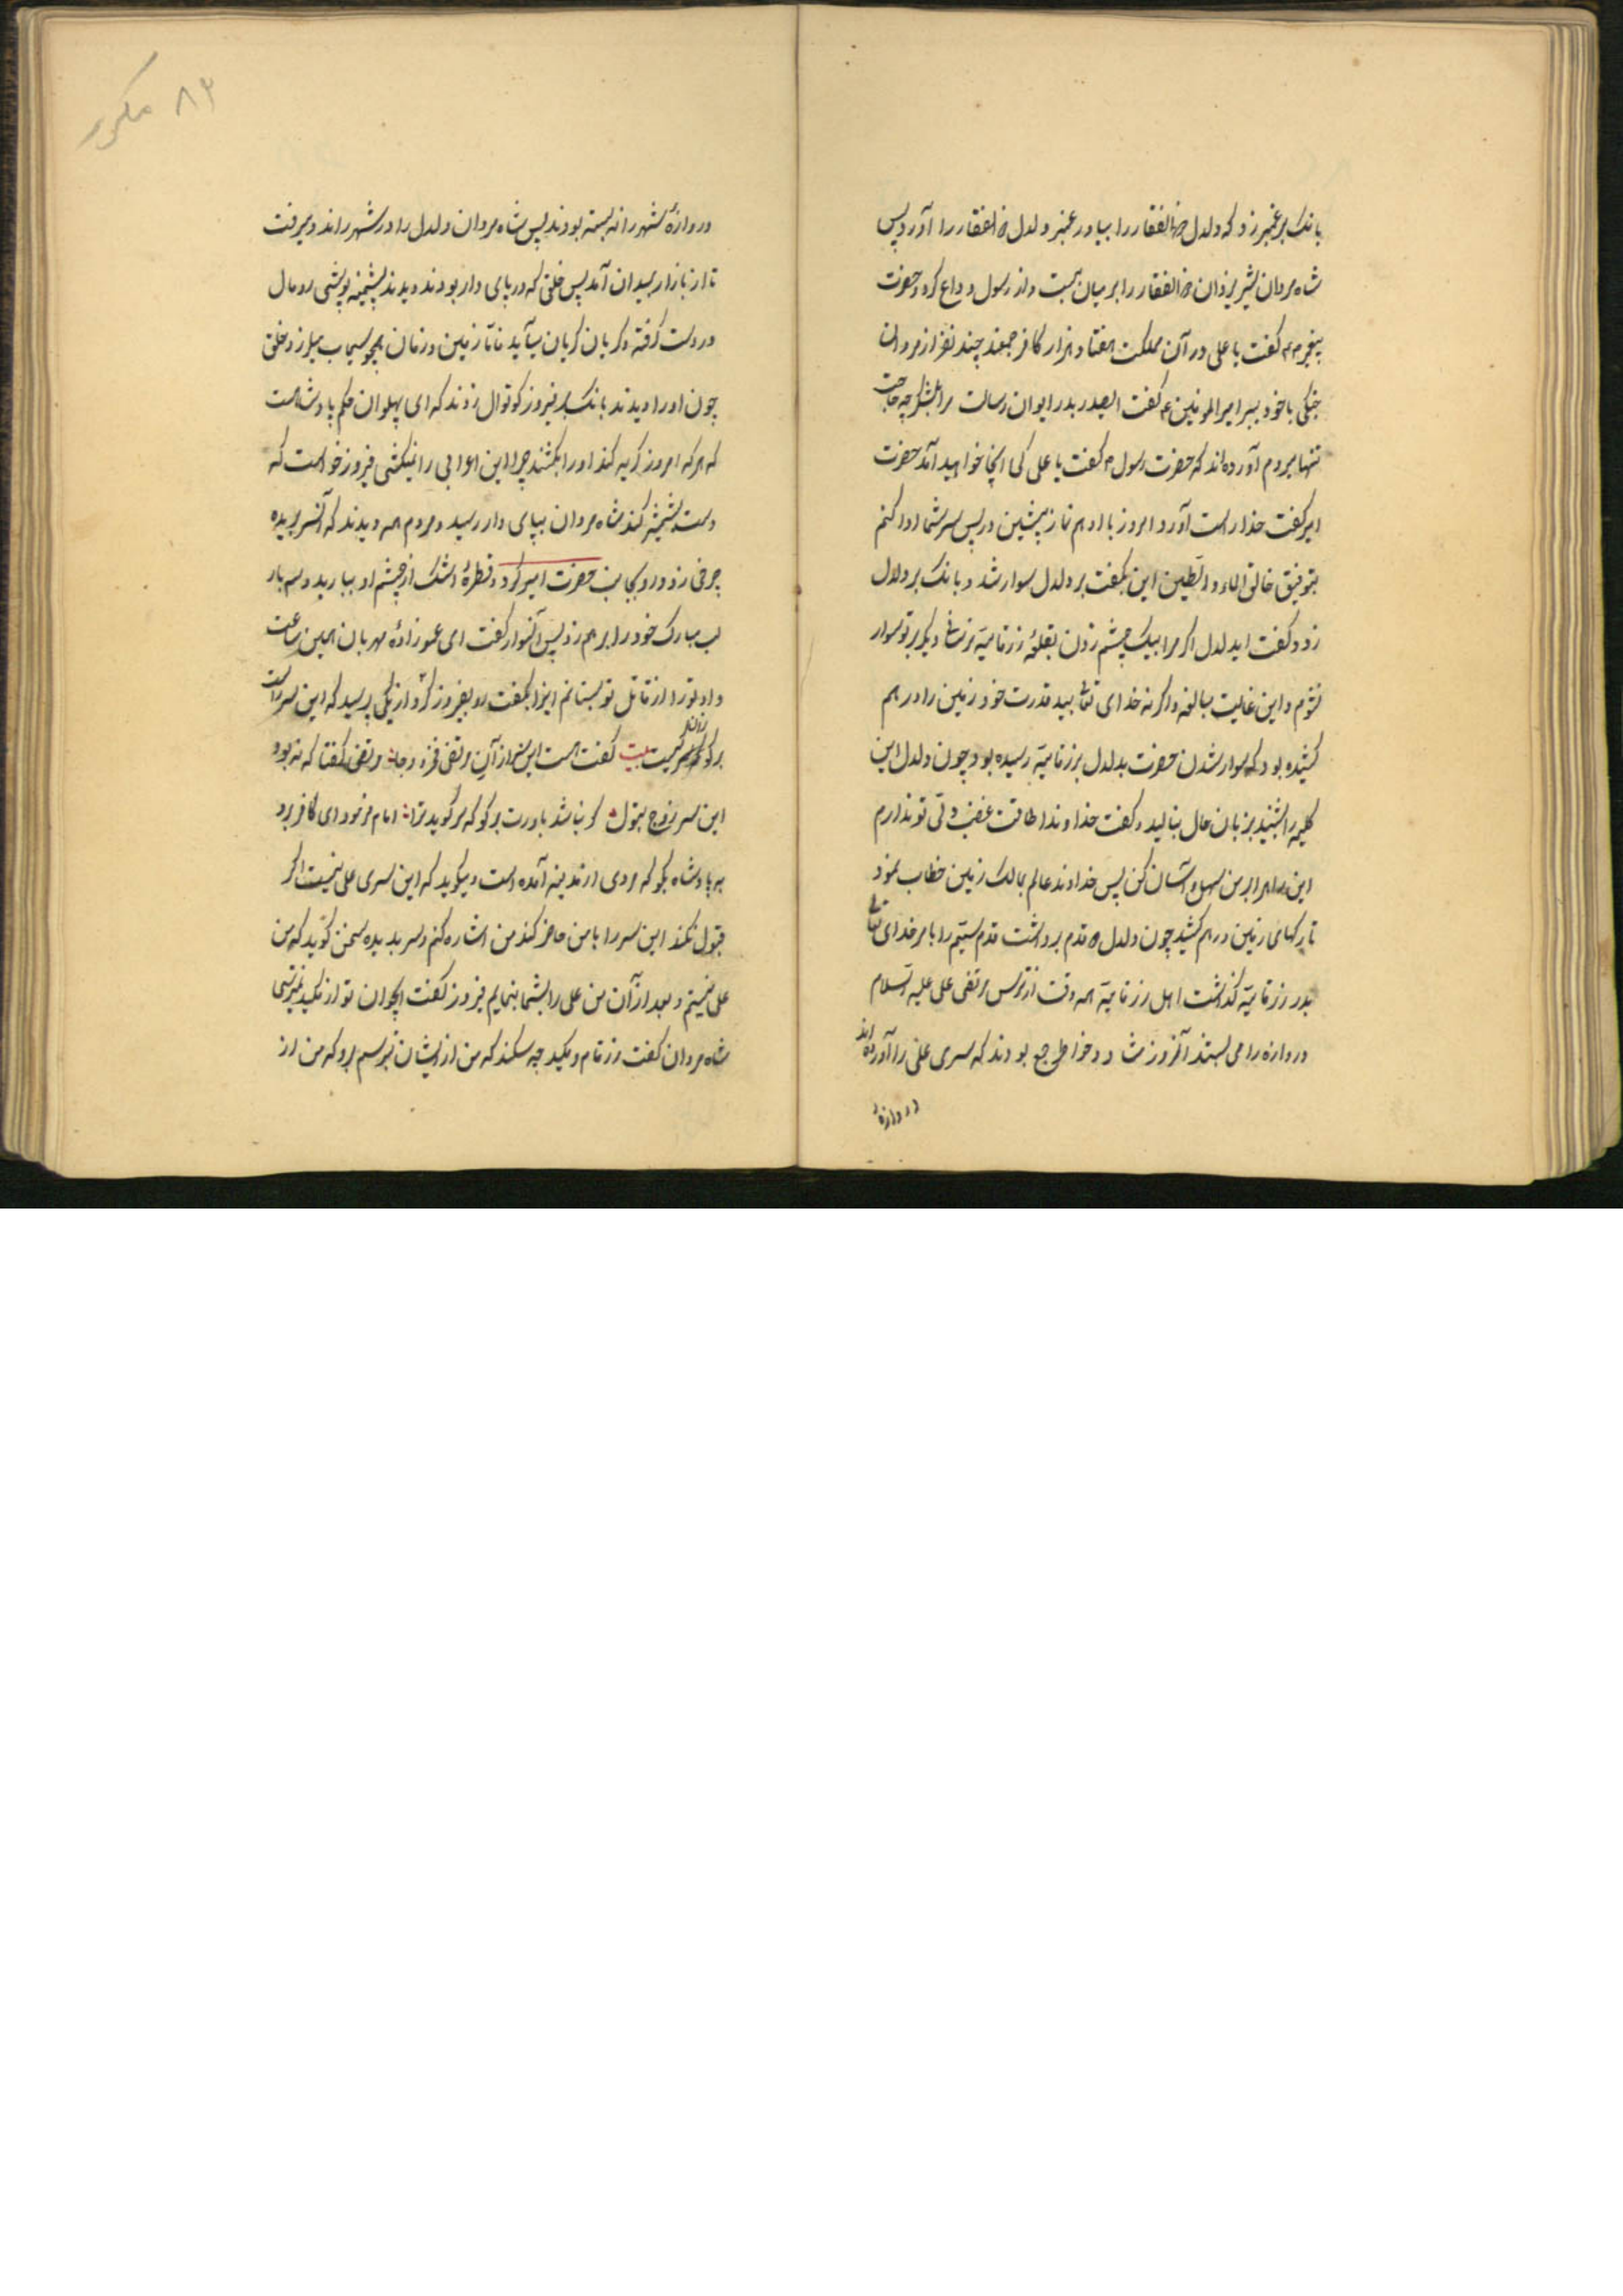 بانک بر عنبر زد که دلدل ذوالفقار را بیاور عنبر دلدل ذوالفقار را آورد پس
شاه مردان شیر یزدان ذوالفقار را بر میان بست و از رسول وداع کرد حضرت
پیغمبر گفت یا علی در آن مملکت هفتاد هزار کافر جمعند چند نفر از مردان
جنگی با خود ببر امیرالمومنین گفت ای صدر بدر ایوان رسالت مرا بلشکر چه حاجت
تنها میروم آورده اند که حضرت رسول گفت یا علی کی اینجا خواهید آمد حضرت
امیر گفت خدا راست آورد امروز با ادهم نماز پیشین در پس سر شما ادا کنم
بتوفیق خالق الماء و الطین این بگفت بر دلدل سوار شد و بانک بر دلدل
زد و گفت ایدلدل اگر مرا بیک چشم زدن بقلعه زرقامیه نرسانی دیگر بر تو سوار
نشوم و این غایت مبالغه و اگر نه خدای تعالی بید قدرت خود زمین را در هم
کشیده بود که سوار شدن حضرت بدلدل بزرقامیه رسیده بود چون دلدل این
کلمه را شنید بزبان حال بنالید و گفت خداوندا طاقت غضب ولی تو ندارم
این راه را بر من سهل و آسان کن پس خداوند عالم بمالک زمین خطاب نمود
تا رکهای زمین در هم کشید چون دلدل قدم برداشت قدم سیم را بامر خدای تعالی
بدر زرقامیه گذاشت اهل زرقامیه همه وقت از ترس مرتضی علی علیه السلام
دروازه را می بستند آنروز شاد و خواطر جمع بودند که سری علی را آورده اند
دروازه
۸۳ مکرر
دروازهٔ شهر را نه بسته بودند پس شاه مردان دلدل را در شهر راند و میرفت
تا از بازار بمیدان آمد پس خلقی که در پای دار بودند دیدند پشمینه پوشی رومال
در دست گرفته و گریان گریان میآید تا زمین و زمان همچو سیماب میلرزد خلق
چون او را دیدند بانک بر فیروز کوتوال زدند که ای پهلوان حکم پادشاهست
که هر که امروز گریه کند او را بکشند چرا این اعرابی را نمیکشی فیروز خواست که
دست بشمشیر کند شاه مردان بپای دار رسید و مردم همه دیدند که آنسر بریده
چرخی زد و رو بجانب حضرت امیر کرد و قطرهٔ اشک از چشم او ببارید و سه بار
لب مبارک خود را بر هم زد پس آنسوار گفت ای عموزادهٔ مهربان همین ساعت
داد تو را از قاتل تو بستانم اینرا بگفت رو بفیروز کرد و از یکی پرسید که این سر راست
بر گو که سر کیست بیت گفت هست این سر از آن مرتضی مرتضی گفتا که نه بود
این سر زوج بتول گر نباشد باورت بر گو که سر گوید ترا امام فرمود ای کافر برو
به پادشاه بگو که مردی از مدینه آمده است و میگوید که این سری علی نیست اگر
قبول نکند این سر را با من حاضر کند من اشاره کنم و سر بریده سخن گوید که من
علی نیستم و بعد از آن من علی را بشما بنمایم فیروز گفت ایجوان تو از مکید نمیترسی
شاه مردان گفت زرقام و مکید چه سکند که من از ایشان بترسم برو که من از